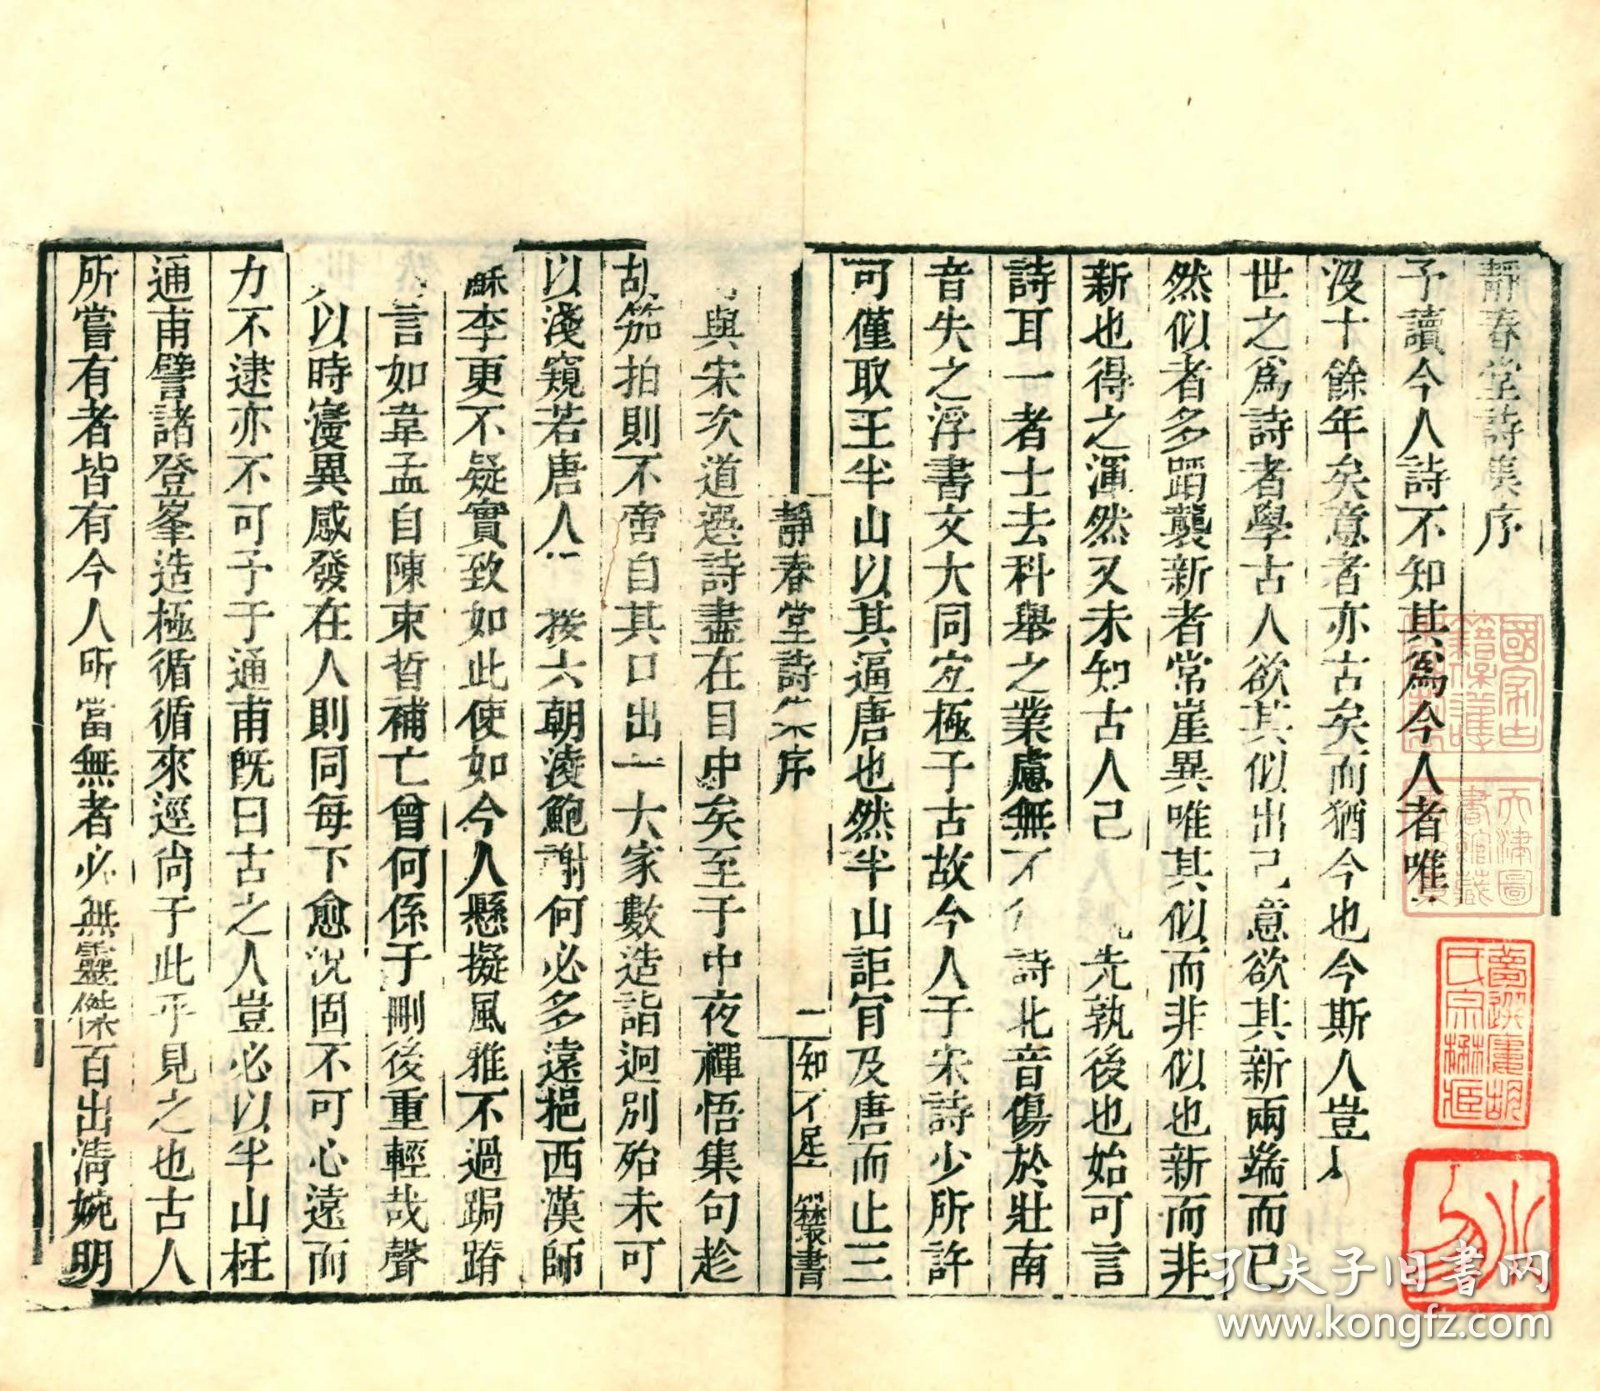 靜春堂詩集序
予讀今人詩不知其爲今人者唯
沒十餘年矣意者亦古矣而猶今也今斯人豈
世之爲詩者學古人欲其似出己意欲其新兩端而已
然似者多蹈襲新者常崖異唯其似而非似也新而非
新也得之渾然又未知古人己 先孰後也始可言
詩耳一者士去科舉之業慮無不 詩北音傷於壯南
音失之浮書文大同宐極于古故今人于宋詩少所許
可僅取王半山以其逼唐也然半山詎肎及唐而止三
靜春堂詩集序
二
知不足齋叢書
與宋次道選詩盡在目中矣至于中夜禪悟集句趁
胡笳拍則不啻自其口出一大家數造詣迥別殆未可
以淺窺若唐人 接六朝淩鮑謝何必多遠挹西漢師
穌李更不疑實致如此使如今人懸擬風雅不過跼蹐
言如韋孟自陳束晳補亡曾何係于刪後重輕哉聲
以時變異感發在人則同每下愈況固不可心遠而
力不逮亦不可予于通甫旣曰古之人豈必以半山枉
通甫譬諸登峯造極循循來逕尚于此乎見之也古人
所嘗有者皆有今人所當無者必無靈傑百出淸婉明
國家古籍保護
天津圖書館藏
孔夫子旧书网
www.kongfz.com